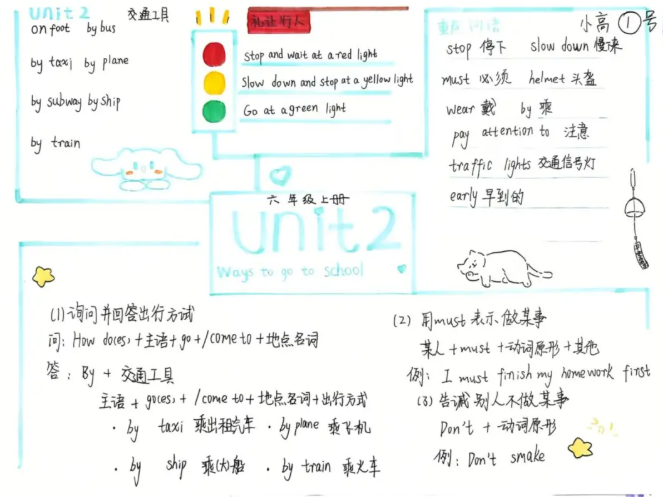 Unit 2 交通工具
on foot by bus
by taxi by plane
by subway by ship
by train
礼让行人
Stop and wait at a red light
Slow down and stop at a yellow light
Go at a green light
小高①号
词语
stop 停下 slow down 慢来
must 必须 helmet 头盔
wear 戴 by 乘
pay attention to 注意
traffic lights 交通信号灯
early 早到的
六年级上册
Unit 2
Ways to go to school
(1) 询问并回答出行方式
问: How do(es) + 主语 + go + /come to + 地点名词
答: By + 交通工具
主语 + go(es) + /come to + 地点名词 + 出行方式
· by taxi 乘出租汽车 · by plane 乘飞机
· by ship 乘(大)船 · by train 乘火车
(2) 用must 表示做某事
某人 + must + 动词原形 + 其他
例: I must finish my homework first
(3) 告诫别人不做某事
Don't + 动词原形
例: Don't smake